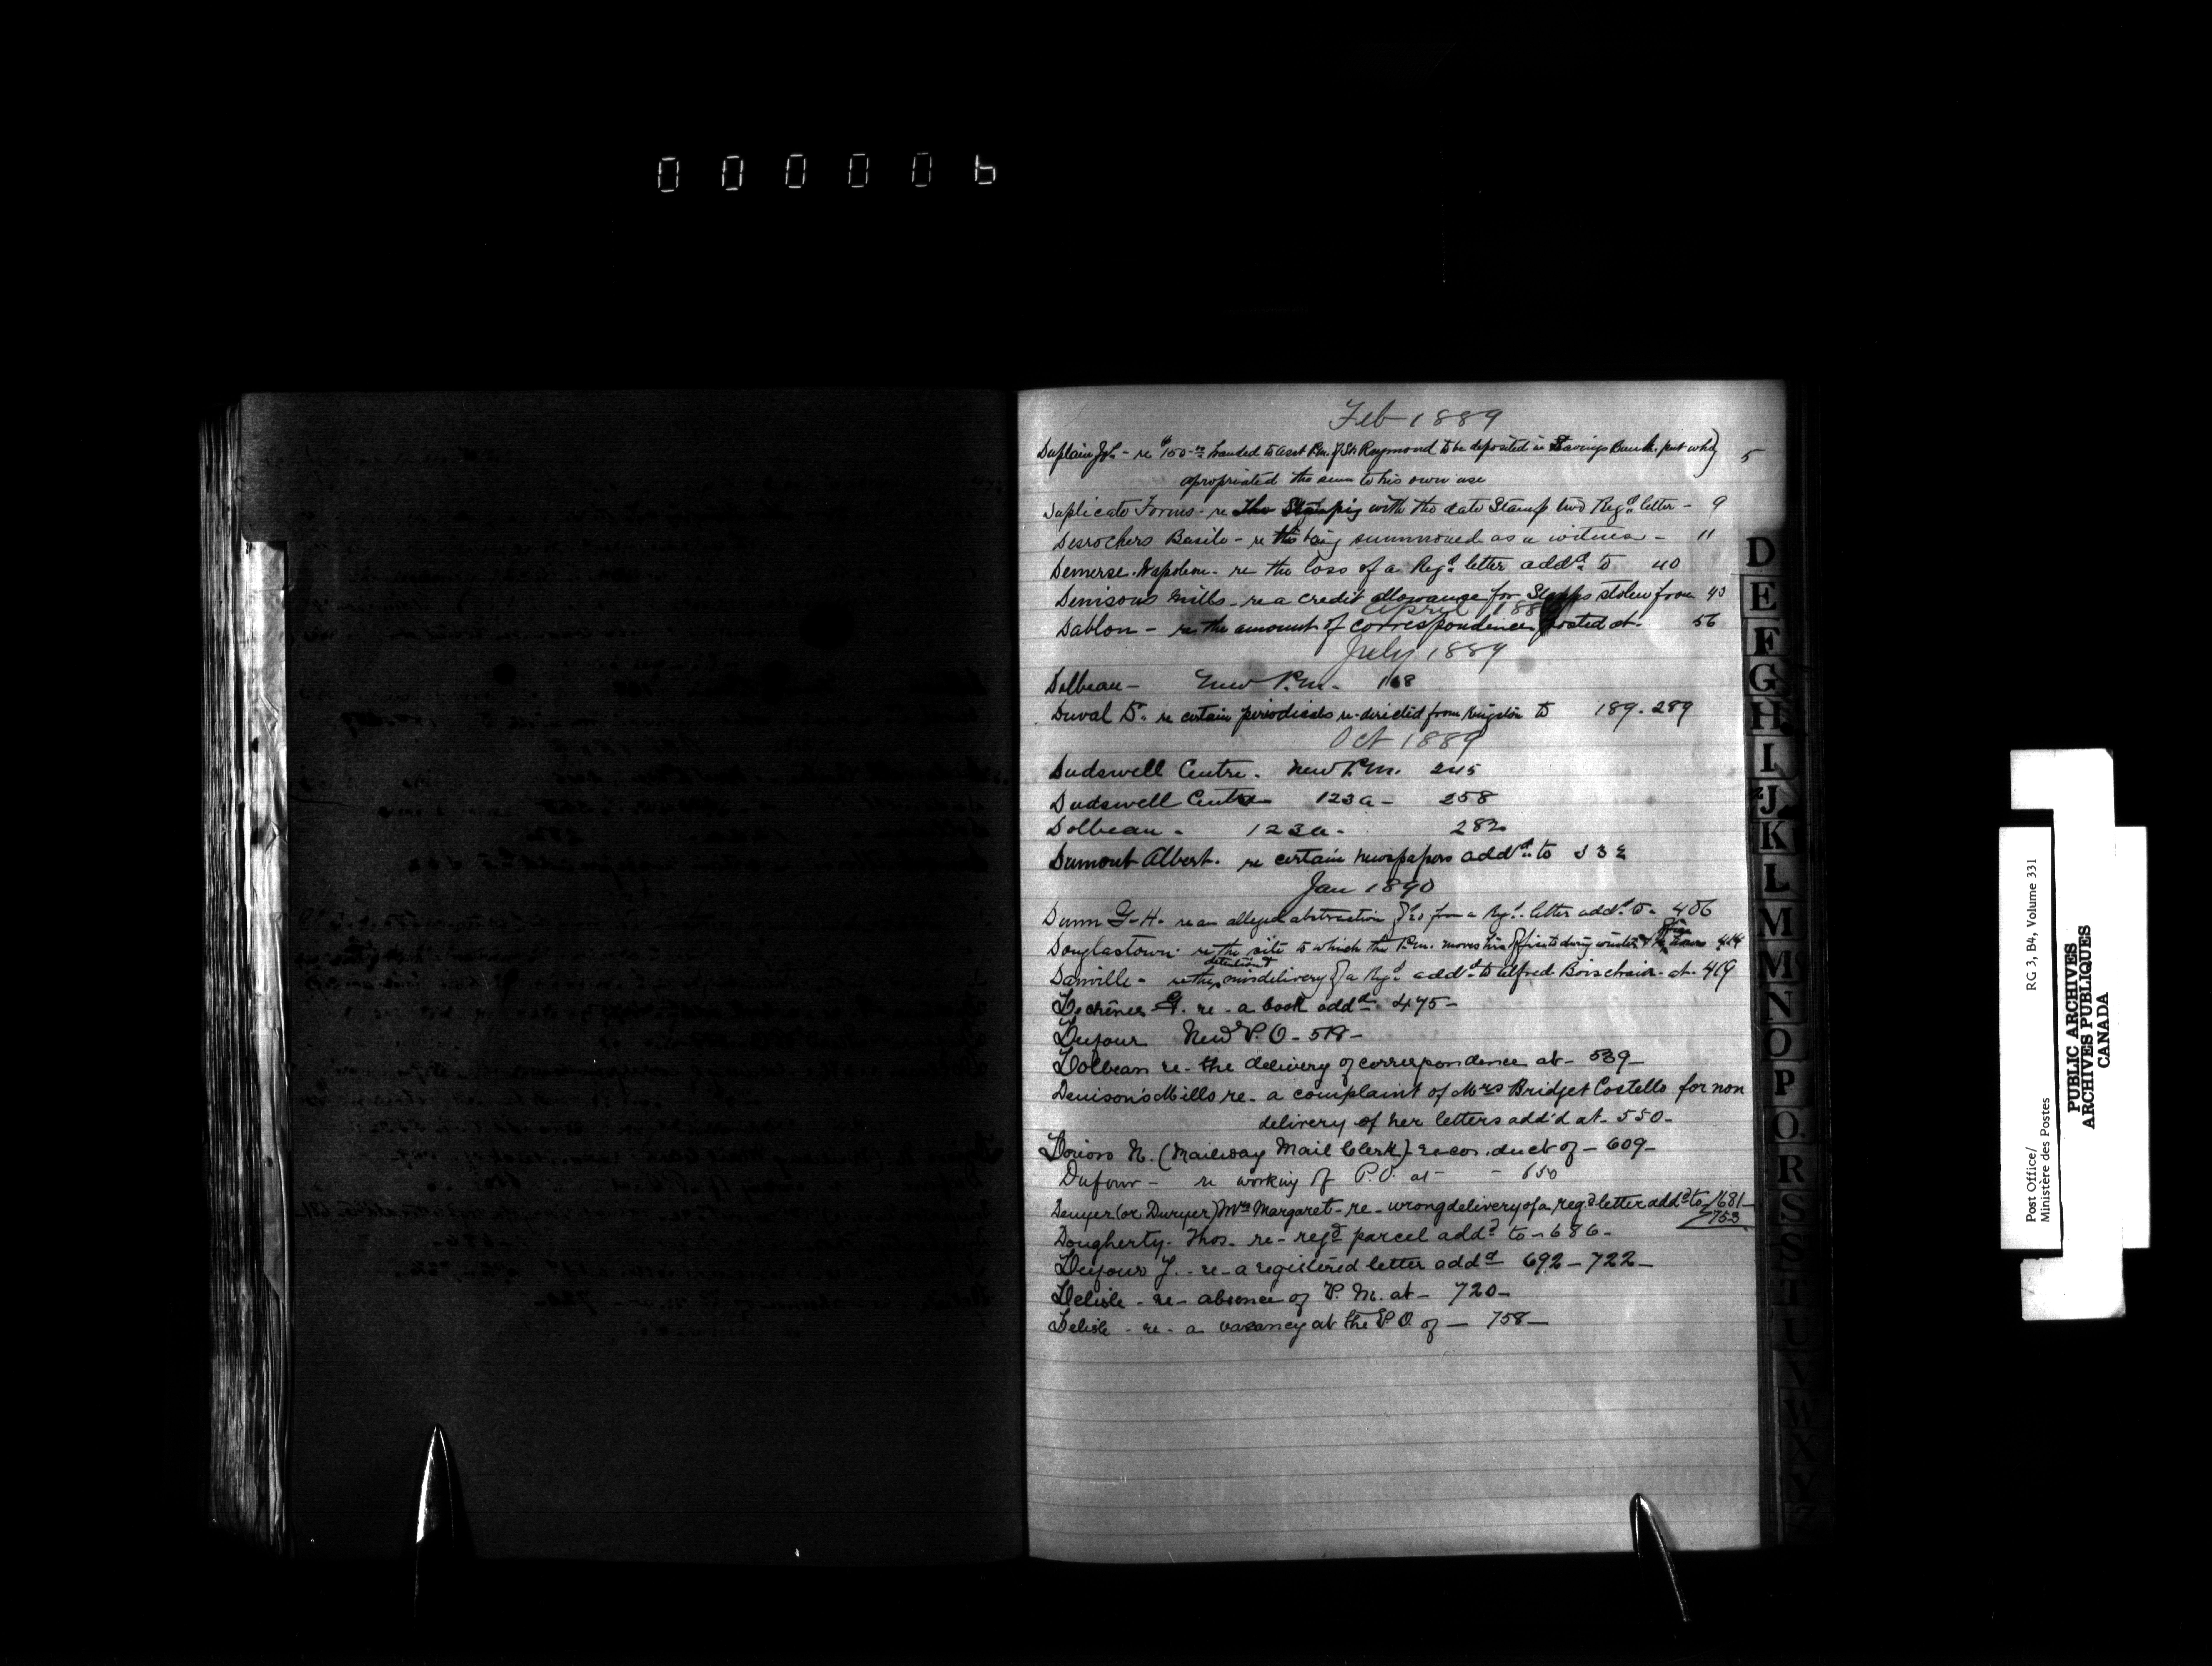 000006
Feb 1889
Duplain Jos - re $150 handed to asst P.m. of St. Raymond to be deposited in Savings Bank. but who) 5
apropriated the sum to his own use
Duplicate Forms - re the Stamping with the date Stamp two Regd letter - 9
Desrochers Basile - re his being summoned as a witness - 11
Demerse Napoleon - re the loss of a Regd letter addd to 40
Denisons Mills - re a credit allowance for Stamps stolen from 43
April 1889
Dablon - re the amount of correspondence posted at 56
July 1889
Dolbeau - New P.M. 168
Duval D. re certain periodicals re-directed from Kingston to 189. 289
Oct 1889
Dudswell Centre. New P.M. 245
Dudswell Centre 123a - 258
Dolbeau - 123a - 282
Dumont Albert. re certain newspapers addd to 332
Jan 1890
Dunn G-H- re an alleged abstraction of from a Regd. letter addd to 406
Douglastown - re the site to which the P.m. moves his office to during winter & office hours 414
Danville - re the detention & misdelivery of a Regd addd to Alfred at 419
Dechênes G. re - a book addd 475 -
Dufour New P.O - 518 -
Dolbeau re - the delivery of correspondence at - 539 -
Denison's Mills re - a complaint of Mrs Bridget Costello for non
delivery of her letters add'd at - 550 -
Dorion N. (Railway Mail Clerk) - re conduct of - 609 -
Dufour - re working of P.O. at - - 650
Denyer (or Duryer) Mrs Margaret - re - wrong delivery of a regd letter addd to 681 -
753
Dougherty. Thos. re - regd parcel addd to - 686 -
Dufour J. - re - a registered letter addd 692 - 722 -
Delisle - re - absence of P. M. at - 720 -
Delisle - re - a vacancy at the P.O. of - 758 -
D
E
F
G
H
I
J
K
L
M
Mc
N
O
P
Q
R
S
S
T
U
V
W
X
Y
Z
Post Office/
Ministère des Postes
RG 3, B4, Volume 331
PUBLIC ARCHIVES
ARCHIVES PUBLIQUES
CANADA